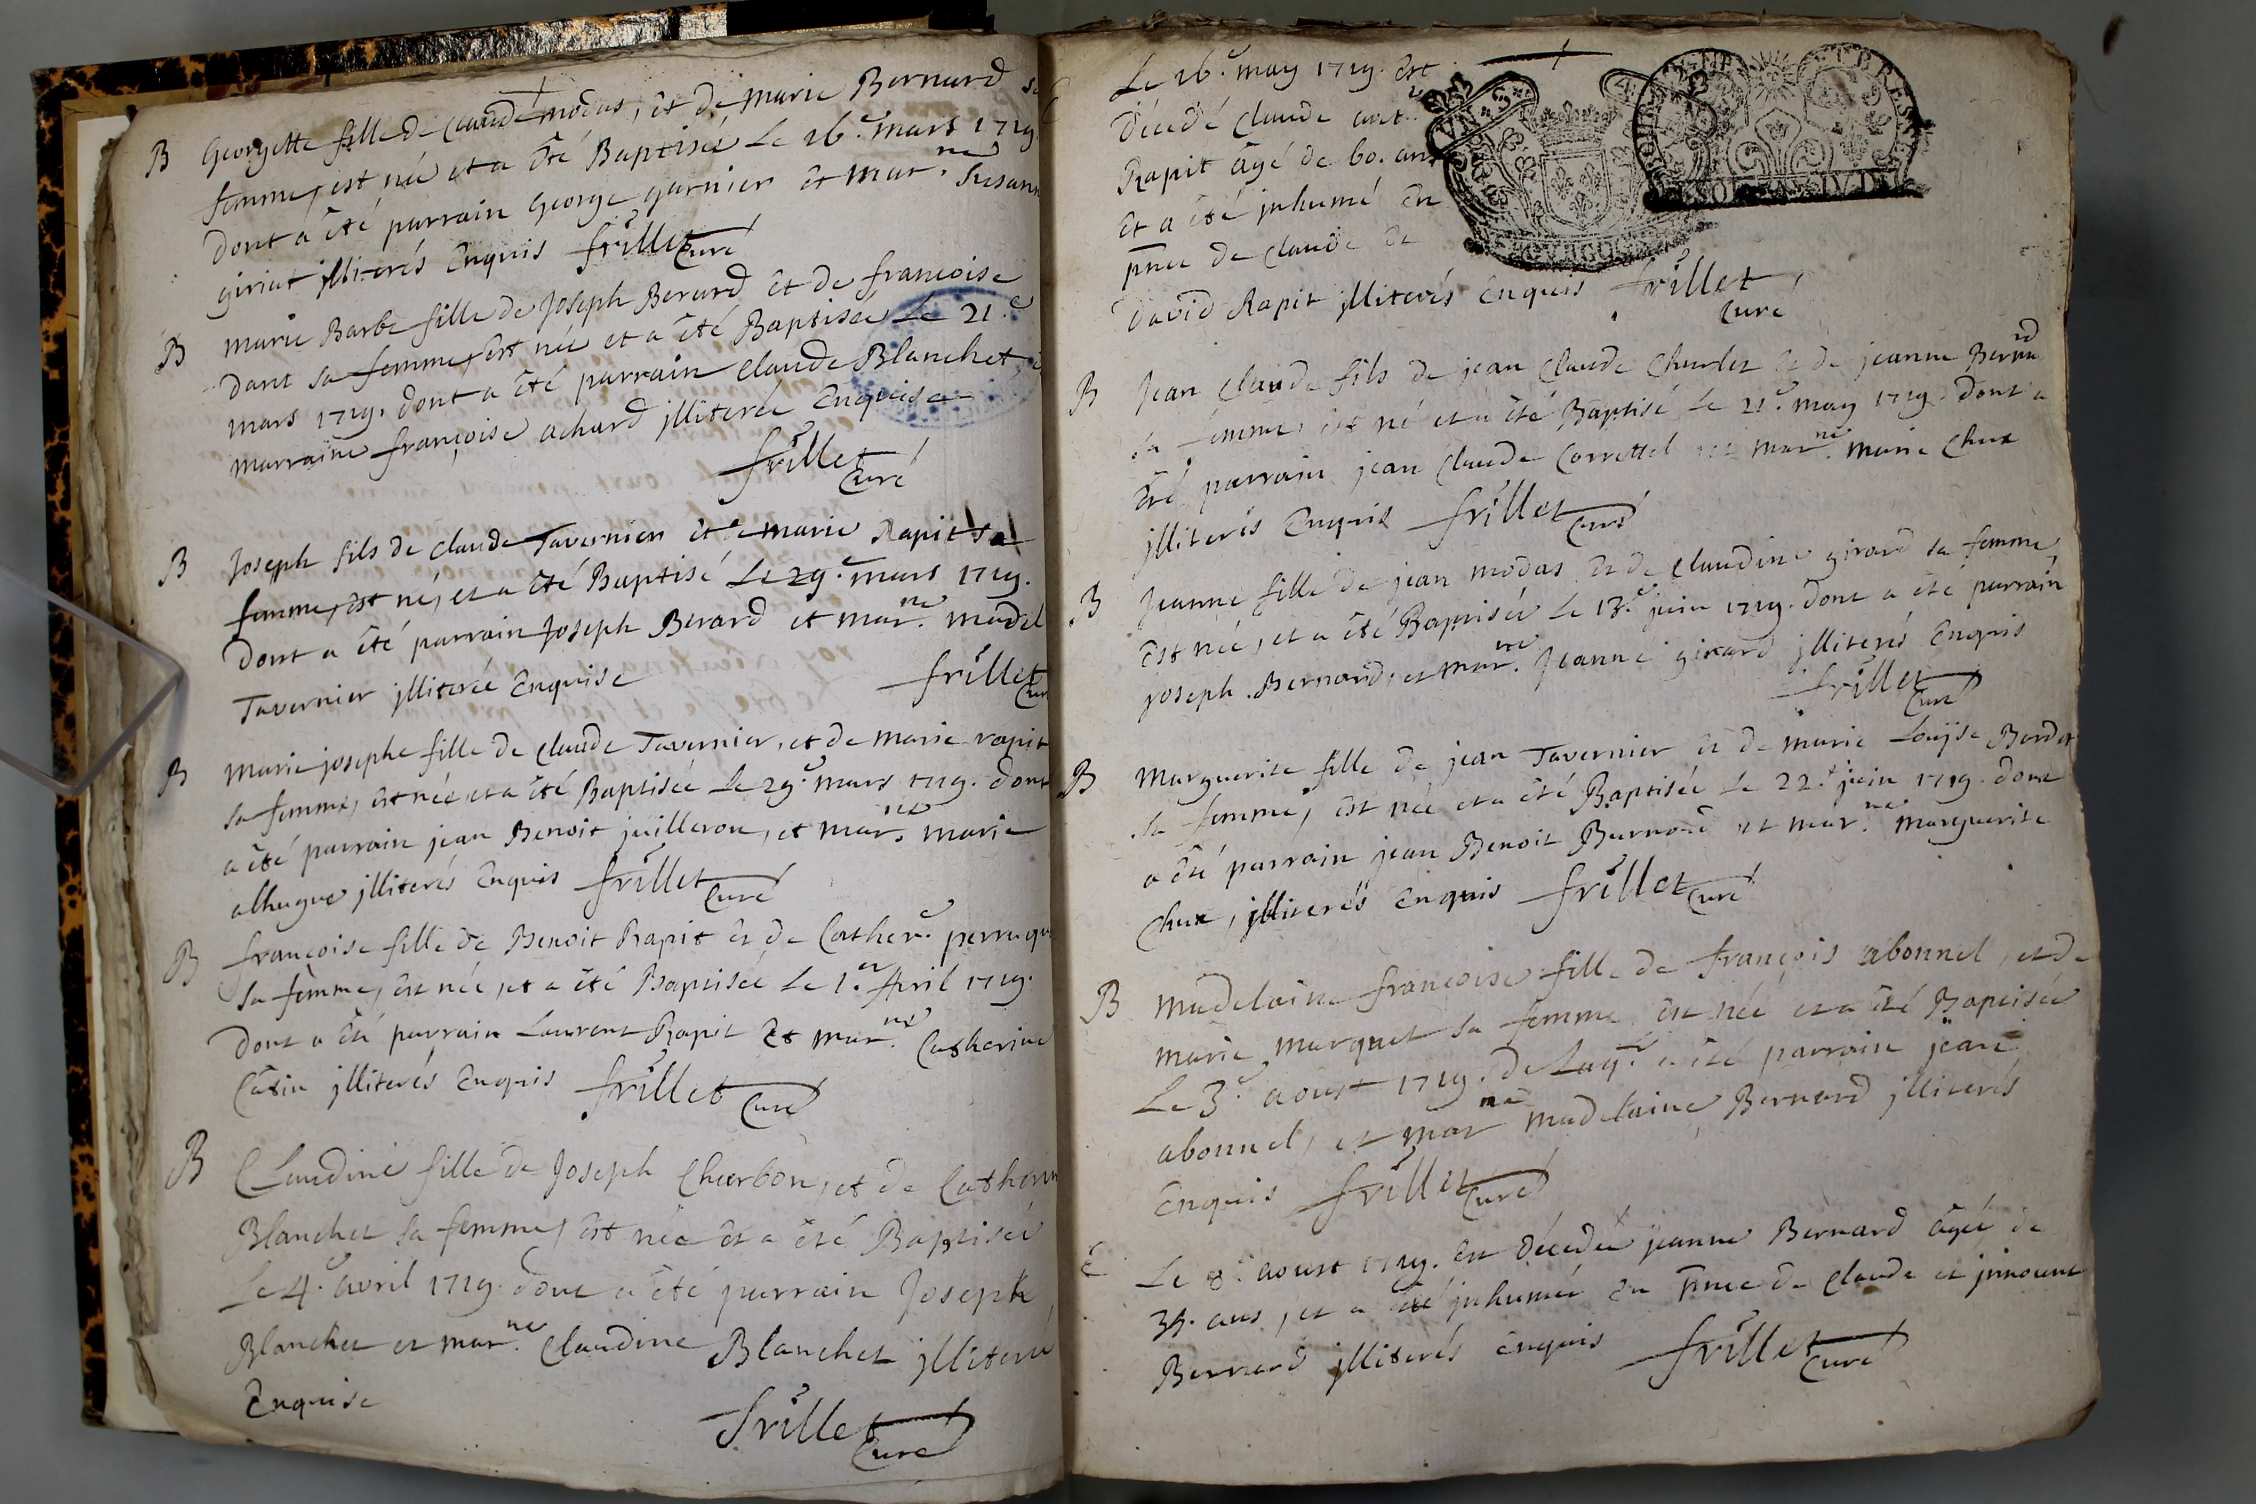 B Georgette fille de Claude modas, et de marie Bernard sa
femme, est née et a été Baptisée Le 16.e mars 1719
Dont a été parrain George garnier et mar.ne Susanne
giriat jlliterés Enquis frillet Curé
B marie Barbe fille de Joseph Berard et de francoise
Dant sa femme, est née et a été Baptisée Le 21.e
mars 1719. dont a été parrain Claude Blanchet et
marraine françoise achard jlliterée Enquise
frillet Curé
B Joseph fils de Claude Tavernier et marie Rapit sa
femme, est né, et a été Baptisé Le 29.e mars 1719.
Dont a été parrain Joseph Berard et mar.ne madel
Tavernier jlliterée Enquise frillet Cur
B marie josephe fille de Claude Tavernier, et de marie rapit
sa femme, est née et a été Baptisée Le 29.e mars 1719. dont
a été parrain jean Benoit juilleron, et mar.ne marie
alhugue jlliterés Enquis frillet Curé
B françoise fille de Benoit Rapit et de Cather.e perruqu
sa femme, est née, et a été Baptisée Le 1.er Avril 1719.
Dont a été parrain Laurent Rapit Et mar.ne Catherine
Catin jlliterés Enquis frillet Curé
B Claudine fille de Joseph Charbon, et de Catherin
Blanchet sa femme, est née et a été Baptisée
Le 4.e avril 1719. dont a été parrain Joseph
Blanchet et mar.ne Claudine Blanchet jlliteré
Enquise
frillet Curé
Le 16.e may 1719. Est
Décédé Claude ant.e
Rapit âgé de 60. ans
Et a été jnhumé En
pnce de Claude et
David Rapit jlliterés Enquis frillet Curé
B Jean Claude fils de jean Claude Charlet et de jeanne Bernard
sa femme, est né et a été Baptisé Le 21.e may 1719. Dont a
Eté parrain jean Claude Correttel et mar.ne marie Chux
jlliterés Enquis frillet Curé
B Jeanne fille de jean modas et de Claudine girard sa femme,
Est née, et a été Baptisée Le 13.e juin 1719. dont a été parrain
joseph Bernard, et mar.ne Jeanne girard jlliterés Enquis
frillet Curé
B Marguerite fille de jean Tavernier et de marie Louyse Bordat
sa femme, est née et a été Baptisée Le 22.e juin 1719. dont
a été parrain jean Benoit Burnoud et mar.ne marguerite
Chux, jlliterés Enquis frillet Curé
B Madelaine françoise fille de françois abonnel, et de
marie marquet sa femme est née et a été Baptisée
Le 3.e aoust 1719. de Laq.le a été parrain jean
abonnel, et mar.ne madelaine Bernard jlliterés
Enquis frillet Curé
Le 8.e aoust 1719. est décédée jeanne Bernard âgée de
39. ans, et a été jnhumée En pnce de Claude et jnnocent
Bernard jlliterés Enquis frillet Curé